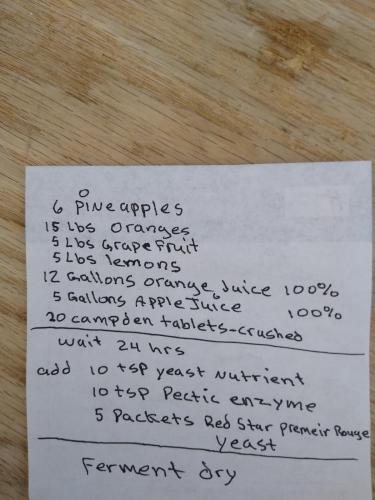 6 Pineapples
15 Lbs oranges
5 Lbs Grapefruit
5 Lbs lemons
12 Gallons orange Juice 100%
5 Gallons Apple Juice 100%
20 campden tablets-crushed
wait 24 hrs
add 10 tsp yeast nutrient
10 tsp Pectic enzyme
5 Packets Red Star Premeir Rouge
yeast
Ferment dry